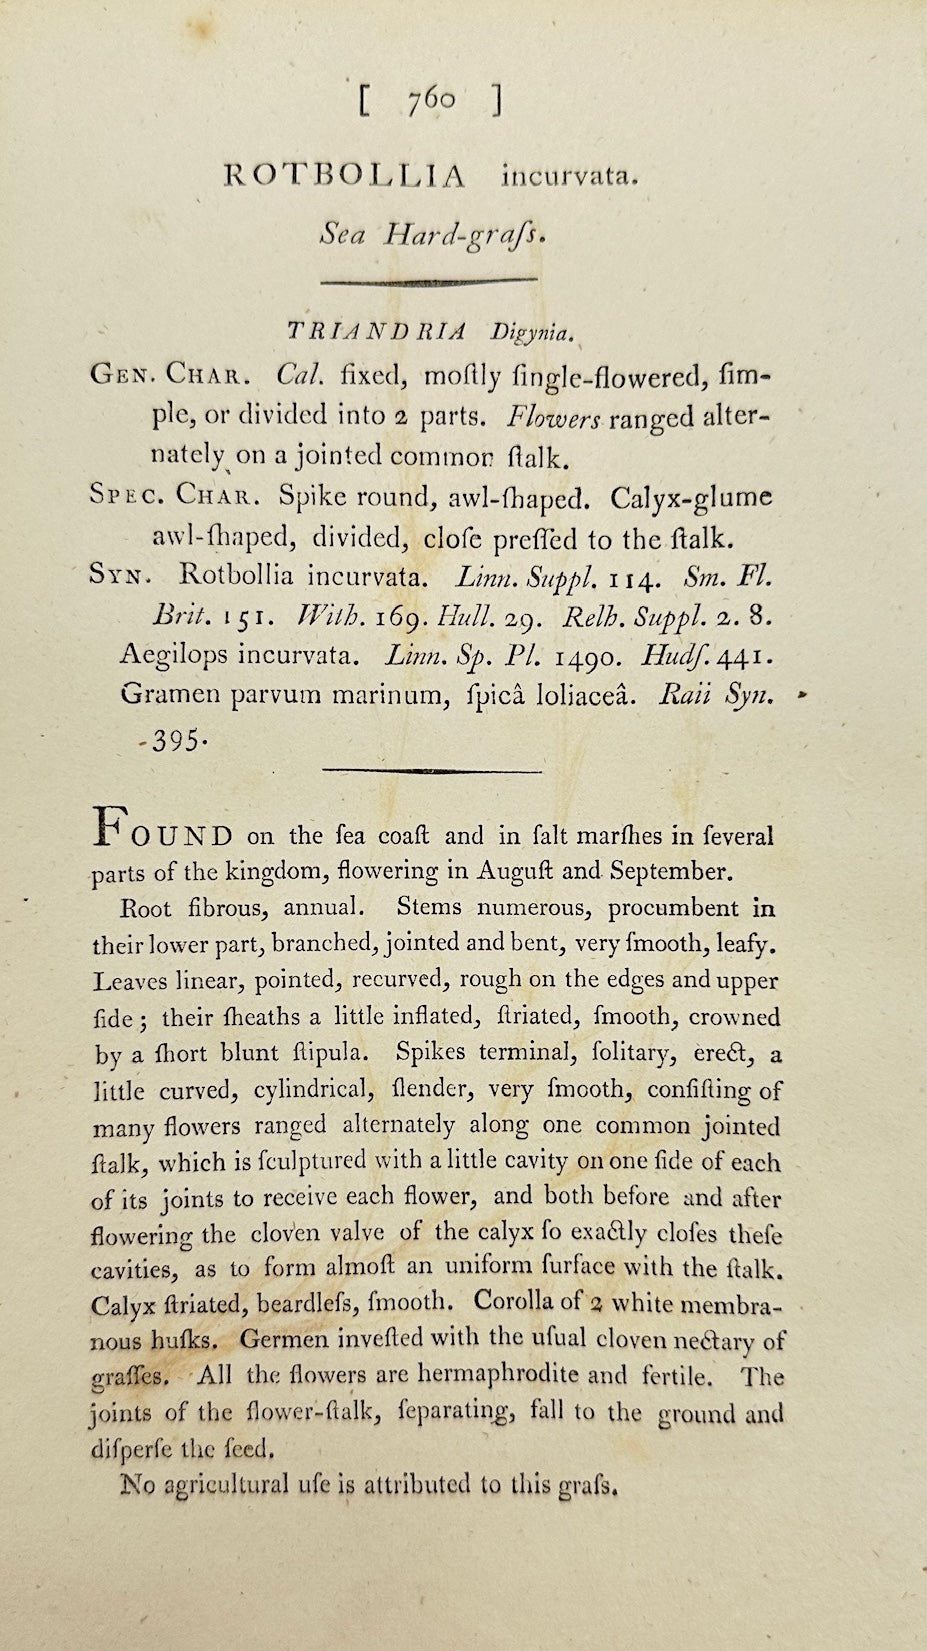 [ 760 ]
ROTBOLLIA incurvata.
Sea Hard-graſs.
TRIANDRIA Digynia.
GEN. CHAR. Cal. fixed, moſtly ſingle-flowered, ſim-
ple, or divided into 2 parts. Flowers ranged alter-
nately on a jointed common ſtalk.
SPEC. CHAR. Spike round, awl-ſhaped. Calyx-glume
awl-ſhaped, divided, cloſe preſſed to the ſtalk.
SYN. Rotbollia incurvata. Linn. Suppl. 114. Sm. Fl.
Brit. 151. With. 169. Hull. 29. Relh. Suppl. 2. 8.
Aegilops incurvata. Linn. Sp. Pl. 1490. Hudſ. 441.
Gramen parvum marinum, ſpicâ loliaceâ. Raii Syn.
395.
FOUND on the ſea coaſt and in ſalt marſhes in ſeveral
parts of the kingdom, flowering in Auguſt and September.
Root fibrous, annual. Stems numerous, procumbent in
their lower part, branched, jointed and bent, very ſmooth, leafy.
Leaves linear, pointed, recurved, rough on the edges and upper
ſide; their ſheaths a little inflated, ſtriated, ſmooth, crowned
by a ſhort blunt ſtipula. Spikes terminal, ſolitary, erect, a
little curved, cylindrical, ſlender, very ſmooth, conſiſting of
many flowers ranged alternately along one common jointed
ſtalk, which is ſculptured with a little cavity on one ſide of each
of its joints to receive each flower, and both before and after
flowering the cloven valve of the calyx ſo exactly cloſes theſe
cavities, as to form almoſt an uniform ſurface with the ſtalk.
Calyx ſtriated, beardleſs, ſmooth. Corolla of 2 white membra-
nous huſks. Germen inveſted with the uſual cloven nectary of
graſſes. All the flowers are hermaphrodite and fertile. The
joints of the flower-ſtalk, ſeparating, fall to the ground and
diſperſe the ſeed.
No agricultural uſe is attributed to this graſs.